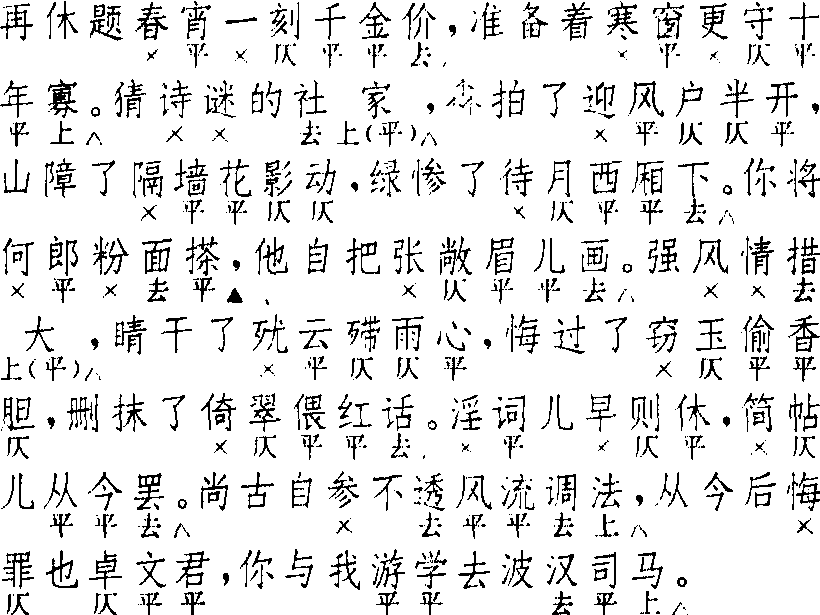 再休题春宵一刻千金价,准备着寒窗更守十
× 平 × 仄 平 平 去、 × 平 × 仄 平
年寡。猜诗谜的社 家 ,拍了迎风户半开,
平 上 ∧ × × 去 上(平)∧ × 平 仄 仄 平
山障了隔墙花影动,绿惨了待月西厢下。你将
× 平 平 仄 仄 × 仄 平 平 去 ∧
何郎粉面搽,他自把张敞眉儿画。强风情措
× 平 × 去 平 ▲ 、 × 仄 平 平 去 ∧ × × 去
大 ,晴干了云殢雨心,悔过了窃玉偷香
上(平)∧ × 平 仄 仄 平 × 仄 平 平
胆,删抹了倚翠偎红话。淫词儿早则休,简帖
仄 × 仄 平 平 去、 × 平 × 仄 平 × 仄
儿从今罢。尚古自参不透风流调法,从今后悔
平 平 去 ∧ × 去 平 平 去 上 ∧ ×
罪也卓文君,你与我游学去波汉司马。
仄 仄 平 平 平 平 去 平 上 ∧